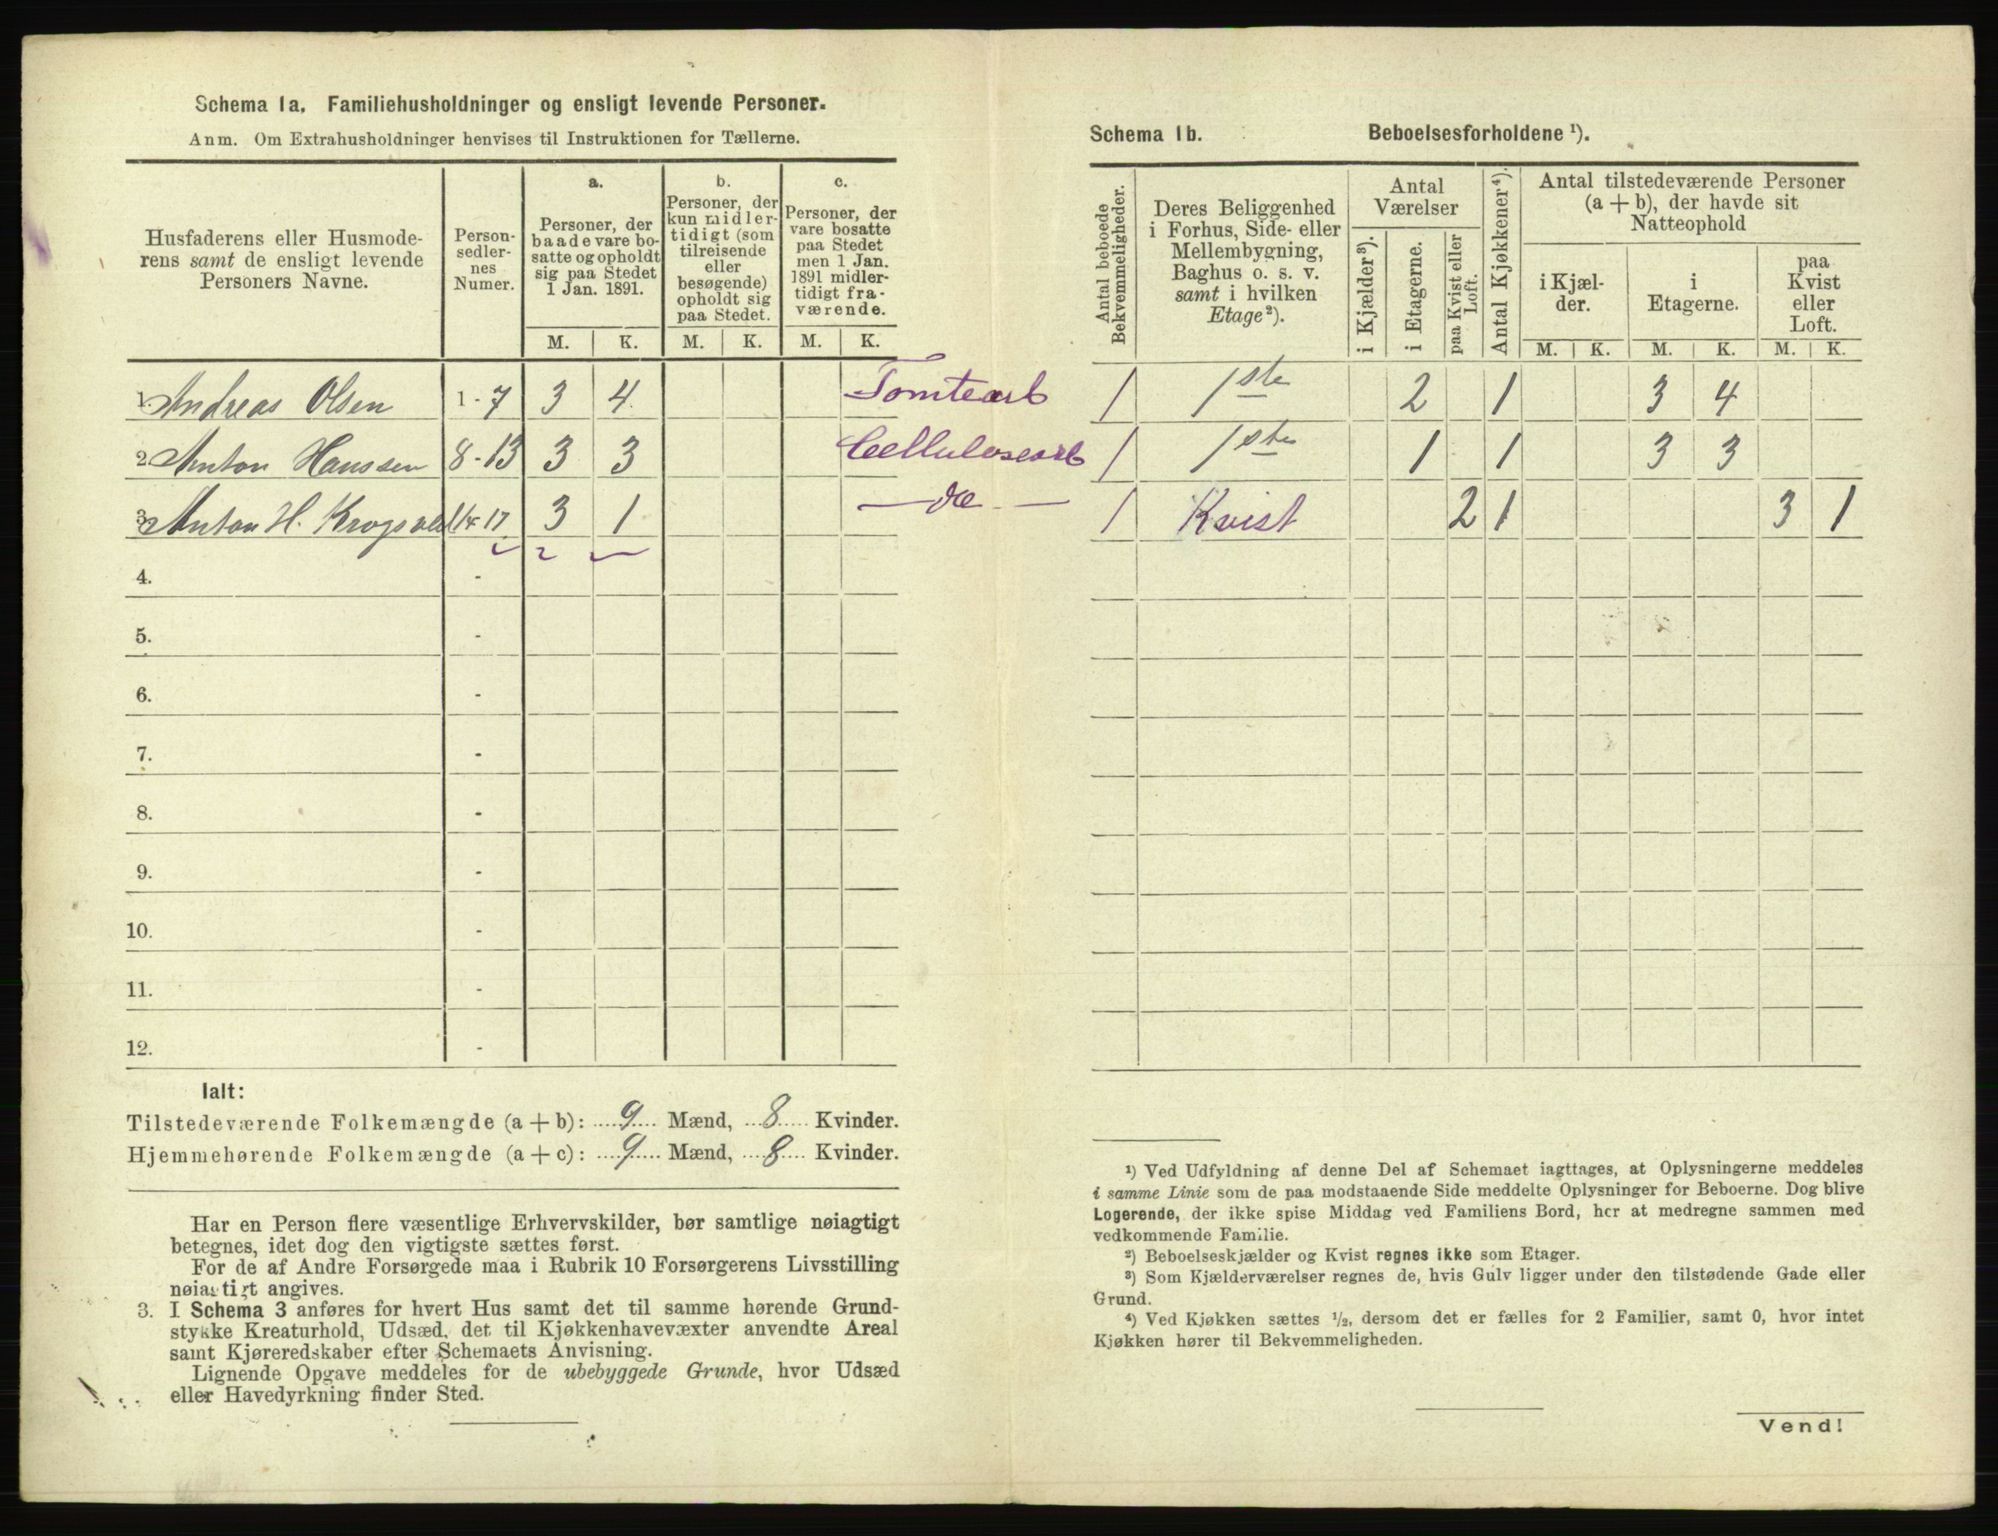 Schema 1a. Familiehusholdninger og ensligt levende Personer.
Anm. Om Extrahusholdninger henvises til Instruktionen for Tællerne.
Husfaderens eller Husmode-
rens samt de ensligt levende
Personers Navne.
Person-
sedler-
nes
Numer.
a.
Personer, der
baade vare bo-
satte og opholdt
sig paa Stedet
1 Jan. 1891.
b.
Personer, der
kun midler-
tidigt (som
tilreisende
eller
besøgende)
opholdt sig
paa Stedet.
c.
Personer, der
vare bosatte
paa Stedet
men 1 Jan.
1891 midler-
tidigt fra-
værende.
M. K. M. K. M. K.
1. Andreas Olsen 1-7 3 4 Tomtearb
2. Anton Hanssen 8-13 3 3 Cellulosearb
3. Anton H. 14-17 3 1 — do —
4. -
5. -
6. -
7. -
8. -
9. -
10. -
11. -
12. -
Ialt:
Tilstedeværende Folkemængde (a + b): 9 Mænd, 8 Kvinder.
Hjemmehørende Folkemængde (a + c): 9 Mænd, 8 Kvinder.
Har en Person flere væsentlige Erhvervskilder, bør samtlige nøiagtigt
betegnes, idet dog den vigtigste sættes først.
For de af Andre Forsørgede maa i Rubrik 10 Forsørgerens Livsstilling
nøiagtigt angives.
3. I Schema 3 anføres for hvert Hus samt det til samme hørende Grund-
stykke Kreaturhold, Udsæd, det til Kjøkkenhavevæxter anvendte Areal
samt Kjøreredskaber efter Schemaets Anvisning.
Lignende Opgave meddeles for de ubebyggede Grunde, hvor Udsæd
eller Havedyrkning finder Sted.
Schema 1b. Beboelsesforholdene ¹).
Antal beboede
Bekvemmeligheder.
Deres Beliggenhed
i Forhus, Side- eller
Mellembygning,
Baghus o. s. v.
samt i hvilken
Etage²).
Antal
Værelser
i Kjælder³).
i Etagerne.
paa Kvist eller
Loft.
Antal Kjøkkener⁴).
Antal tilstedeværende Personer
(a + b), der havde sit
Natteophold
i Kjæl-
der.
i
Etagerne.
paa
Kvist
eller
Loft.
M. K. M. K. M. K.
1 1ste 2 1 3 4
1 1ste 1 1 3 3
1 Kvist 2 1 3 1
¹) Ved Udfyldning af denne Del af Schemaet iagttages, at Oplysningerne meddeles
i samme Linie som de paa modstaaende Side meddelte Oplysninger for Beboerne. Dog blive
Logerende, der ikke spise Middag ved Familiens Bord, her at medregne sammen med
vedkommende Familie.
²) Beboelseskjælder og Kvist regnes ikke som Etager.
³) Som Kjælderværelser regnes de, hvis Gulv ligger under den tilstødende Gade eller
Grund.
⁴) Ved Kjøkken sættes ½, dersom det er fælles for 2 Familier, samt 0, hvor intet
Kjøkken hører til Bekvemmeligheden.
Vend!